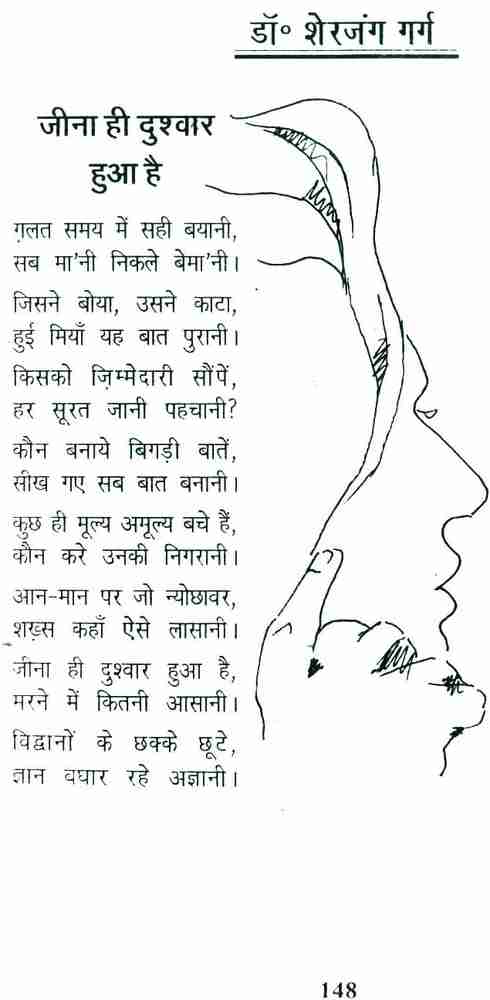 डॉ॰ शेरजंग गर्ग
जीना ही दुश्वार
हुआ है
ग़लत समय में सही बयानी,
सब मा'नी निकले बेमा'नी।
जिसने बोया, उसने काटा,
हुई मियाँ यह बात पुरानी।
किसको ज़िम्मेदारी सौंपें,
हर सूरत जानी पहचानी?
कौन बनाये बिगड़ी बातें,
सीख गए सब बात बनानी।
कुछ ही मूल्य अमूल्य बचे हैं,
कौन करे उनकी निगरानी।
आन-मान पर जो न्योछावर,
शख़्स कहाँ ऐसे लासानी।
जीना ही दुश्वार हुआ है,
मरने में कितनी आसानी।
विद्वानों के छक्के छूटे,
ज्ञान बघार रहे अज्ञानी।
148